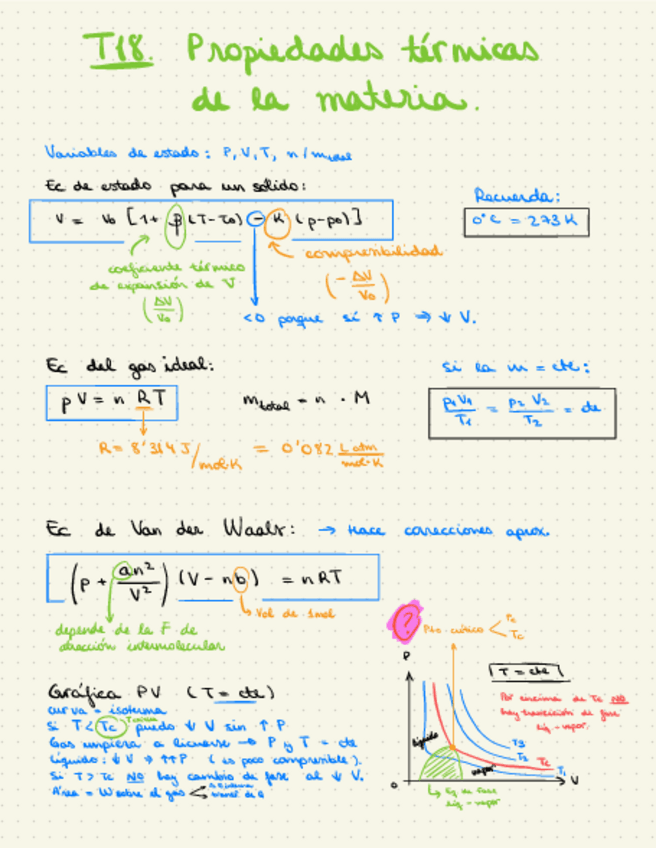 T18. Propiedades térmicas
de la materia.
Variables de estado: P, V, T, n/mtotal
Ec de estado para un sólido:
V = V0 [1 + β (T-T0) - K (p-p0)]
Recuerda:
0°C = 273 K
coeficiente térmico
de expansión de V
(ΔV/V0)
compresibilidad
(- ΔV/V0)
<0 porque si ↑ P ⇒ ↓ V.
Ec del gas ideal:
pV = n RT
mtotal = n · M
R = 8'314 J/mol·K = 0'082 L atm/mol·K
Si la m = cte:
P1V1/T1 = P2V2/T2 = cte
Ec de Van der Waals: → Hace correcciones aprox.
(p + an²/V²) (V - nb) = nRT
Vol de 1mol
depende de la F de
atracción intermolecular
Gráfica PV (T = cte)
curva = isoterma
Si T < Tc puedo ↓ V sin ↑ P
Gas empieza a licuarse → P y T = cte
Líquido: ↓ V → ↑↑ P (es poco compresible).
Si T > Tc NO hay cambio de fase al ↓ V.
Área = W sobre el gas
?
Pto. crítico < Pc
Tc
T = cte
Por encima de Tc NO
hay transición de fase
líq-vapor.
P
líquido
vapor
T3
T2
Tc
T1
0
V
Eq en fase
líq-vapor